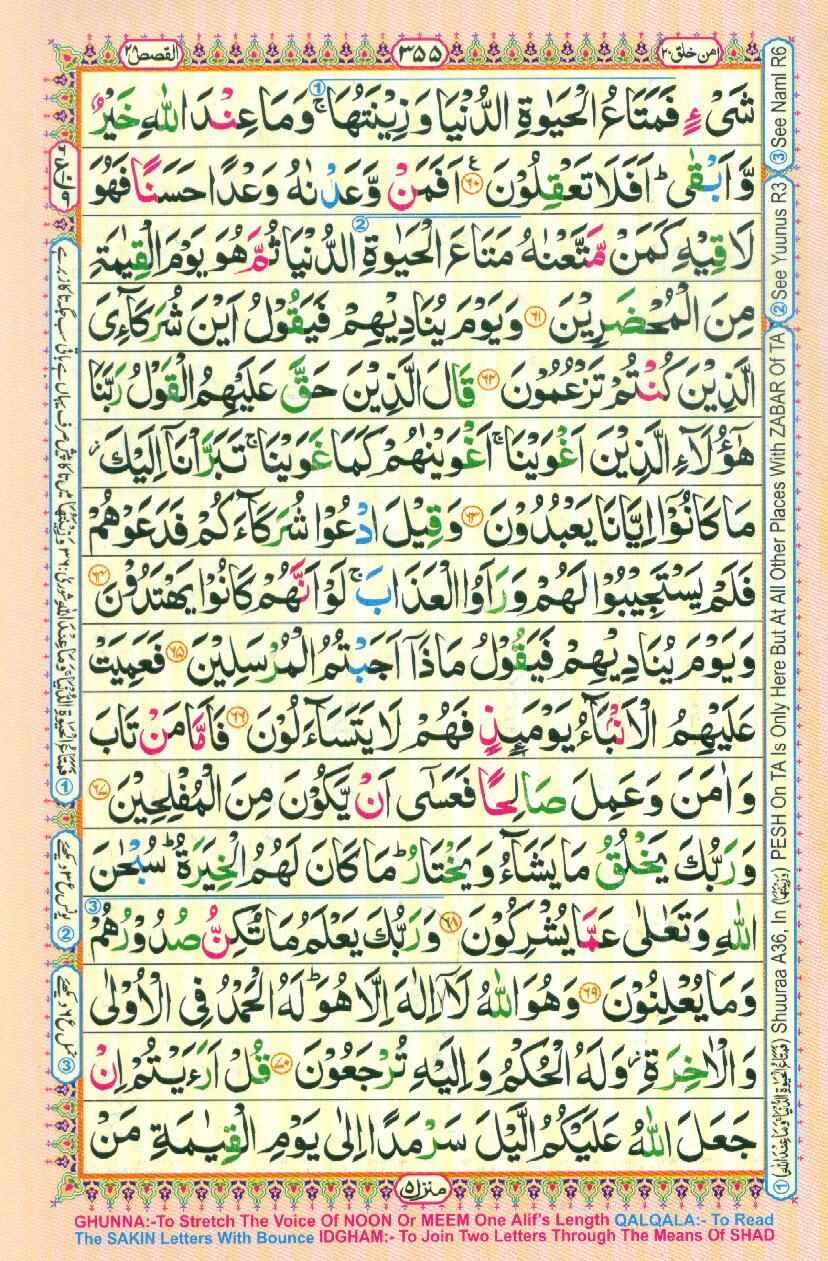 امن خلق ٢٠
٣٥٥
القصص ٢٨
شَیْءٍ فَمَتَاعُ الْحَیٰوةِ الدُّنْیَا وَ زِیْنَتُهَا ۚ وَ مَا عِنْدَ اللّٰهِ خَیْرٌ
وَّ اَبْقٰی ؕ اَفَلَا تَعْقِلُوْنَ ﴿۶۰﴾ اَفَمَنْ وَّعَدْنٰهُ وَعْدًا حَسَنًا فَهُوَ
لَاقِیْهِ كَمَنْ مَّتَّعْنٰهُ مَتَاعَ الْحَیٰوةِ الدُّنْیَا ثُمَّ هُوَ یَوْمَ الْقِیٰمَةِ
مِنَ الْمُحْضَرِیْنَ ﴿۶۱﴾ وَ یَوْمَ یُنَادِیْهِمْ فَیَقُوْلُ اَیْنَ شُرَكَآءِیَ
الَّذِیْنَ كُنْتُمْ تَزْعُمُوْنَ ﴿۶۲﴾ قَالَ الَّذِیْنَ حَقَّ عَلَیْهِمُ الْقَوْلُ رَبَّنَا
هٰۤؤُلَآءِ الَّذِیْنَ اَغْوَیْنَا ۚ اَغْوَیْنٰهُمْ كَمَا غَوَیْنَا ۚ تَبَرَّاْنَاۤ اِلَیْكَ ؗ
مَا كَانُوْۤا اِیَّانَا یَعْبُدُوْنَ ﴿۶۳﴾ وَ قِیْلَ ادْعُوْا شُرَكَآءَكُمْ فَدَعَوْهُمْ
فَلَمْ یَسْتَجِیْبُوْا لَهُمْ وَ رَاَوُا الْعَذَابَ ۚ لَوْ اَنَّهُمْ كَانُوْا یَهْتَدُوْنَ ﴿۶۴﴾
وَ یَوْمَ یُنَادِیْهِمْ فَیَقُوْلُ مَاذَاۤ اَجَبْتُمُ الْمُرْسَلِیْنَ ﴿۶۵﴾ فَعَمِیَتْ
عَلَیْهِمُ الْاَنْۢبَآءُ یَوْمَىِٕذٍ فَهُمْ لَا یَتَسَآءَلُوْنَ ﴿۶۶﴾ فَاَمَّا مَنْ تَابَ
وَ اٰمَنَ وَ عَمِلَ صَالِحًا فَعَسٰۤی اَنْ یَّكُوْنَ مِنَ الْمُفْلِحِیْنَ ﴿۶۷﴾
وَ رَبُّكَ یَخْلُقُ مَا یَشَآءُ وَ یَخْتَارُ ؕ مَا كَانَ لَهُمُ الْخِیَرَةُ ؕ سُبْحٰنَ
اللّٰهِ وَ تَعٰلٰی عَمَّا یُشْرِكُوْنَ ﴿۶۸﴾ وَ رَبُّكَ یَعْلَمُ مَا تُكِنُّ صُدُوْرُهُمْ
وَ مَا یُعْلِنُوْنَ ﴿۶۹﴾ وَ هُوَ اللّٰهُ لَاۤ اِلٰهَ اِلَّا هُوَ ؕ لَهُ الْحَمْدُ فِی الْاُوْلٰی
وَ الْاٰخِرَةِ ؗ وَ لَهُ الْحُكْمُ وَ اِلَیْهِ تُرْجَعُوْنَ ﴿۷۰﴾ قُلْ اَرَءَیْتُمْ اِنْ
جَعَلَ اللّٰهُ عَلَیْكُمُ الَّیْلَ سَرْمَدًا اِلٰی یَوْمِ الْقِیٰمَةِ مَنْ
منزل ۵
① (فَمَتَاعُ الْحَیٰوةِ الدُّنْیَا وَمَا عِنْدَ اللّٰهِ) Shuuraa A36, In (وَزِیْنَتُهَا) PESH On TA Is Only Here But At All Other Places With ZABAR Of TA
② See Yuunus R3
③ See Naml R6
② یونس ع ۳ دیکھیے
③ نمل ع ۶ دیکھیے
GHUNNA:-To Stretch The Voice Of NOON Or MEEM One Alif's Length QALQALA:- To Read
The SAKIN Letters With Bounce IDGHAM:- To Join Two Letters Through The Means Of SHAD